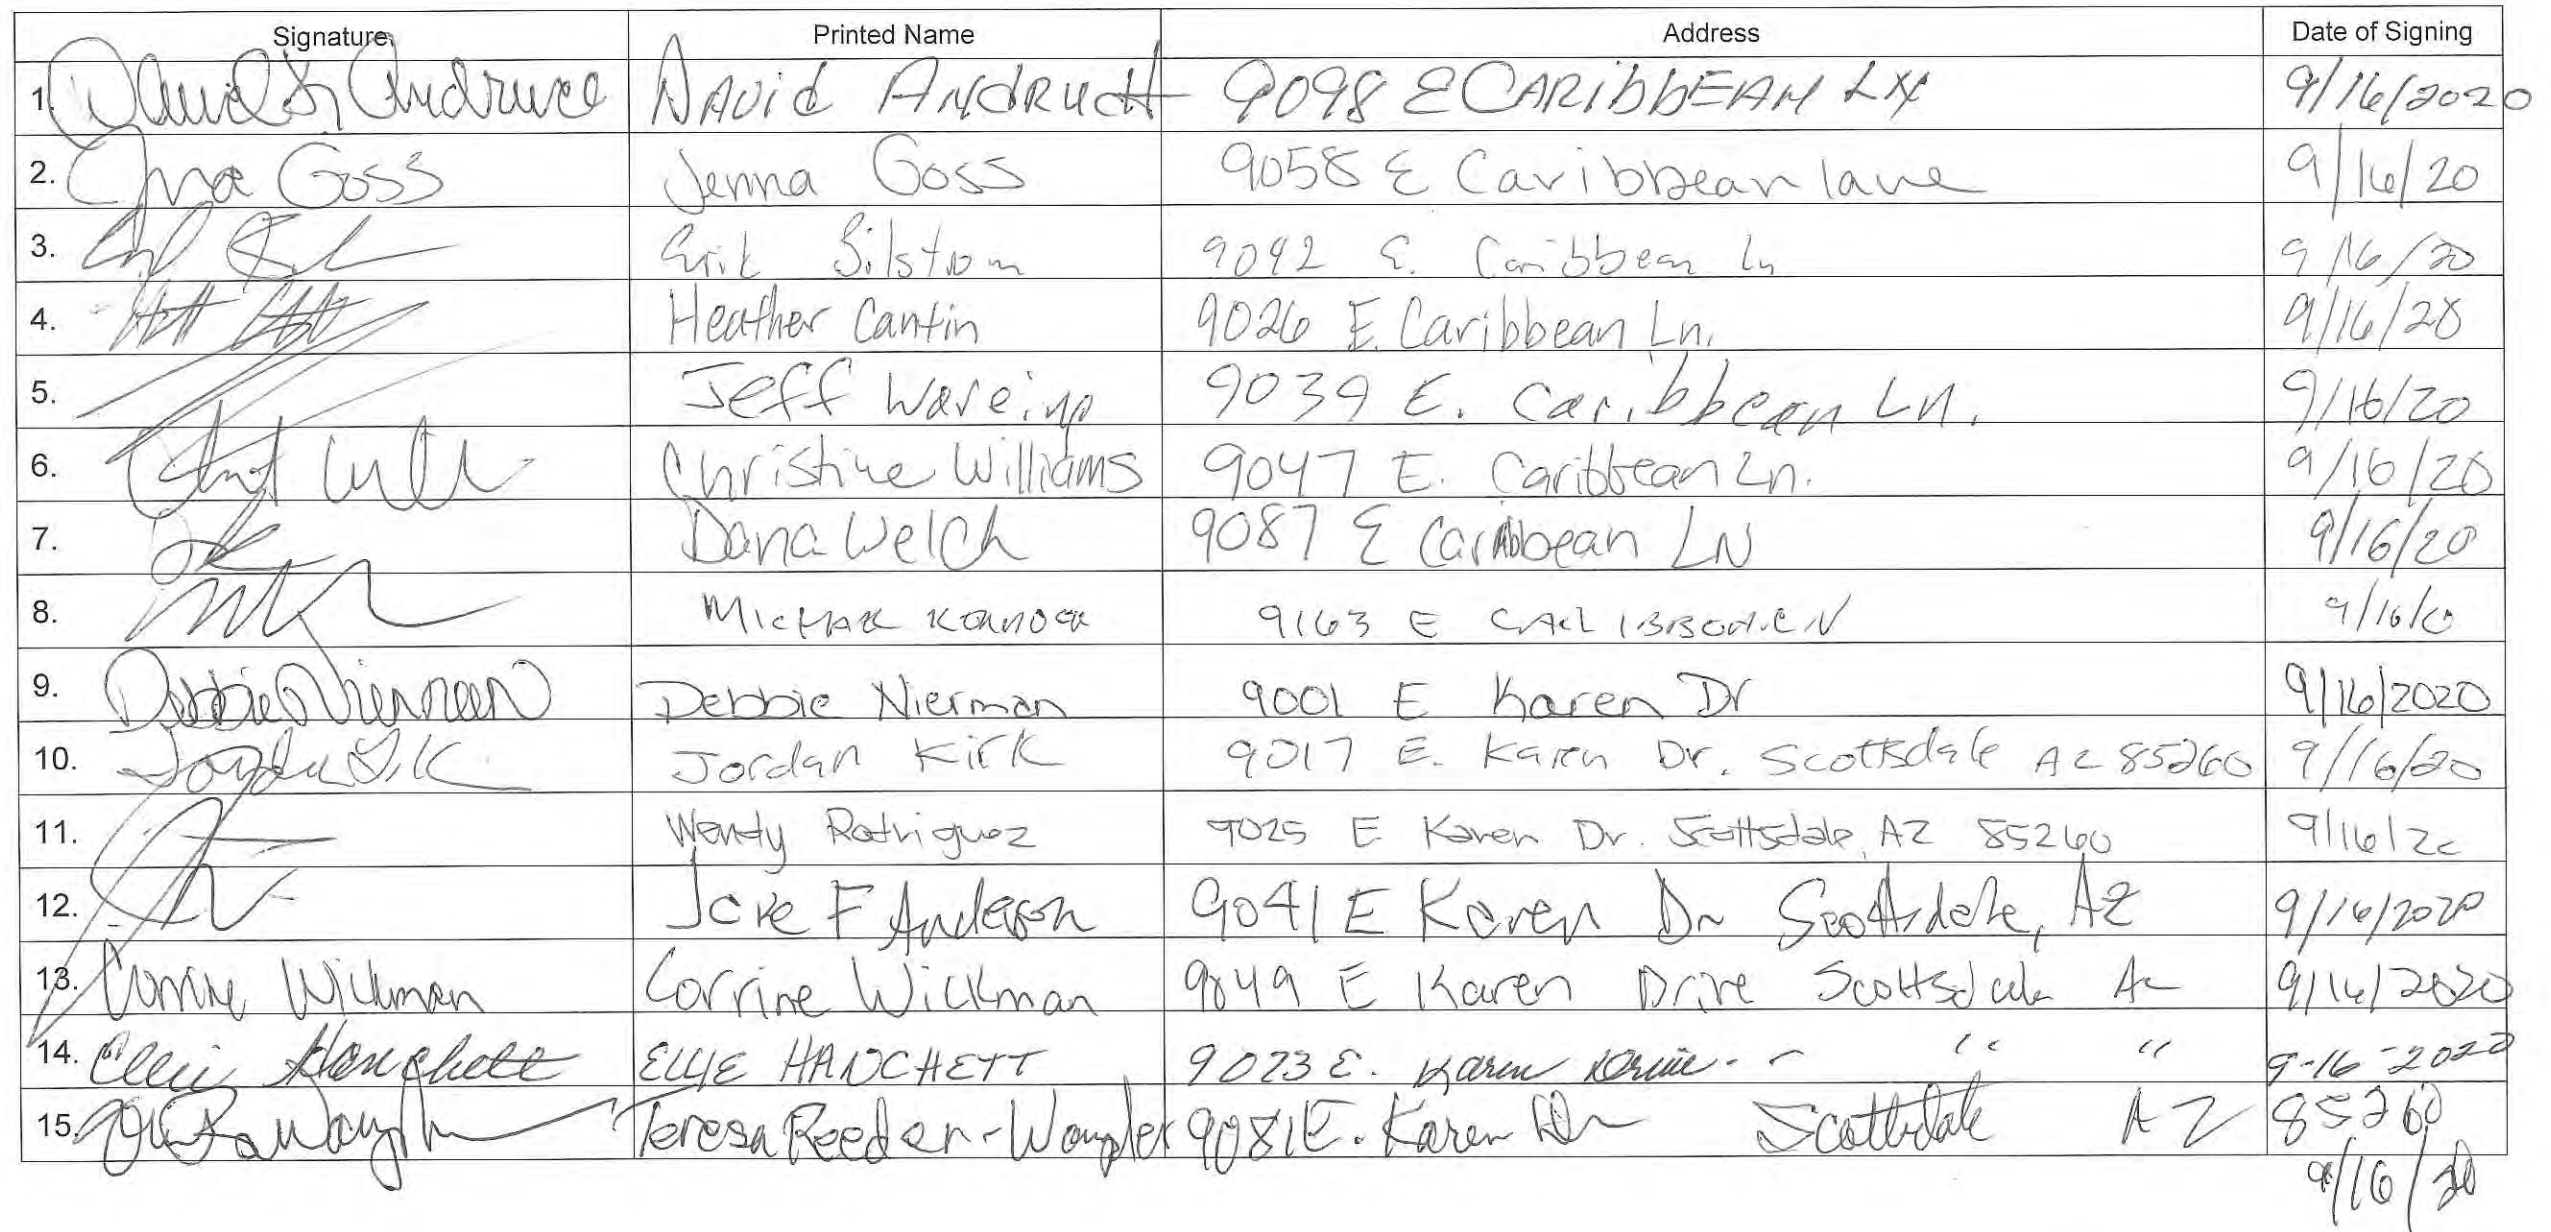 Signature Printed Name Address Date of Signing
1. David Andruett 9098 E CARibbEAN LN 9/16/2020
2. Jenna Goss Jenna Goss 9058 E Caribbean lane 9/16/20
3. Erik Silstrom 9092 E. Caribbean Ln 9/16/20
4. Heather Cantin 9026 E. Caribbean Ln. 9/16/20
5. Jeff Wareing 9039 E. Caribbean Ln. 9/16/20
6. Christine Williams 9047 E. Caribbean Ln. 9/16/20
7. Dana Welch 9087 E Caribbean LN 9/16/20
8. 9163 E 9/16/20
9. Debbie Nierman Debbie Nierman 9001 E Karen Dr 9/16/2020
10. Jordan Kirk 9017 E. Karen Dr. Scottsdale AZ 85260 9/16/20
11. Wendy Rodriguez 9025 E Karen Dr. Scottsdale, AZ 85260 9/16/20
12. F Anderson 9041 E Karen Dr Scottsdale, AZ 9/16/2020
13. Corrine Wickman Corrine Wickman 9049 E Karen Drive Scottsdale Az 9/16/2020
14. Ellie Hanchett ELLIE HANCHETT 9023 E. Karen Drive - - " " 9-16-2020
15. Teresa Reeder-Wampler 9081 E. Karen Dr Scottsdale AZ 85260
9/16/20